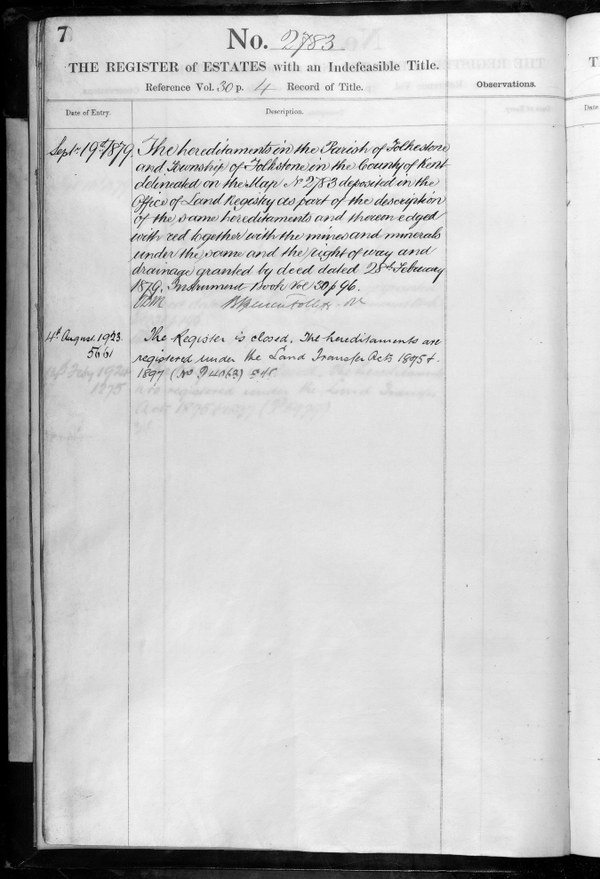 7
No. 2783
THE REGISTER of ESTATES with an Indefeasible Title.
Reference Vol. 30 p. 4 Record of Title.
Observations.
Date of Entry.
Description.
Sept. 19th 1879. The hereditaments in the Parish of Folkestone
and Township of Folkstone in the County of Kent
delineated on the Map No 2783 deposited in the
Office of Land Registry as part of the description
of the same hereditaments and thereon edged
with red together with the mines and minerals
under the same and the right of way and
drainage granted by deed dated 28th February
1879. Instrument Book Vol 30 p 96.
4th August 1923 The Register is closed. The hereditaments are
5661 registered under the Land Transfer Acts 1875 &
1897 (No P 4063)